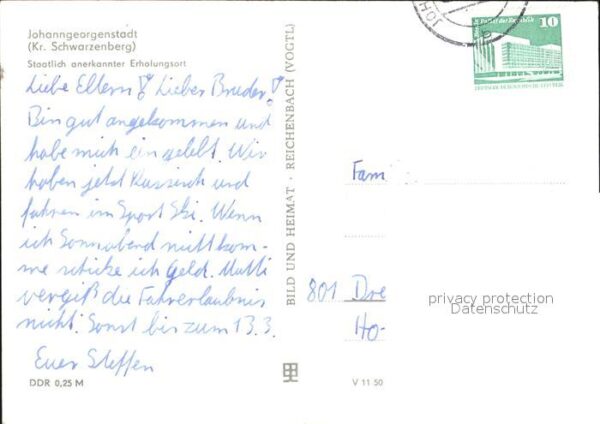 Johanngeorgenstadt
(Kr. Schwarzenberg)
Staatlich anerkannter Erholungsort
Liebe Eltern! Lieber Bruder!
Bin gut angekommen und
habe mich ein gelebt. Wir
haben jetzt Russisch und
fahren im Sport Ski. Wenn
ich Sonnabend mitt kom-
me schicke ich Geld. Mutti
vergiß die Fahrerlaubnis
nicht! Sonst bis zum 13.3.
Euer Steffen
DDR 0,25 M
BILD UND HEIMAT · REICHENBACH (VOGTL)
V 11 50
JOH
Palast der Republik
10
Fam
801 Dre
Ho-
privacy protection
Datenschutz